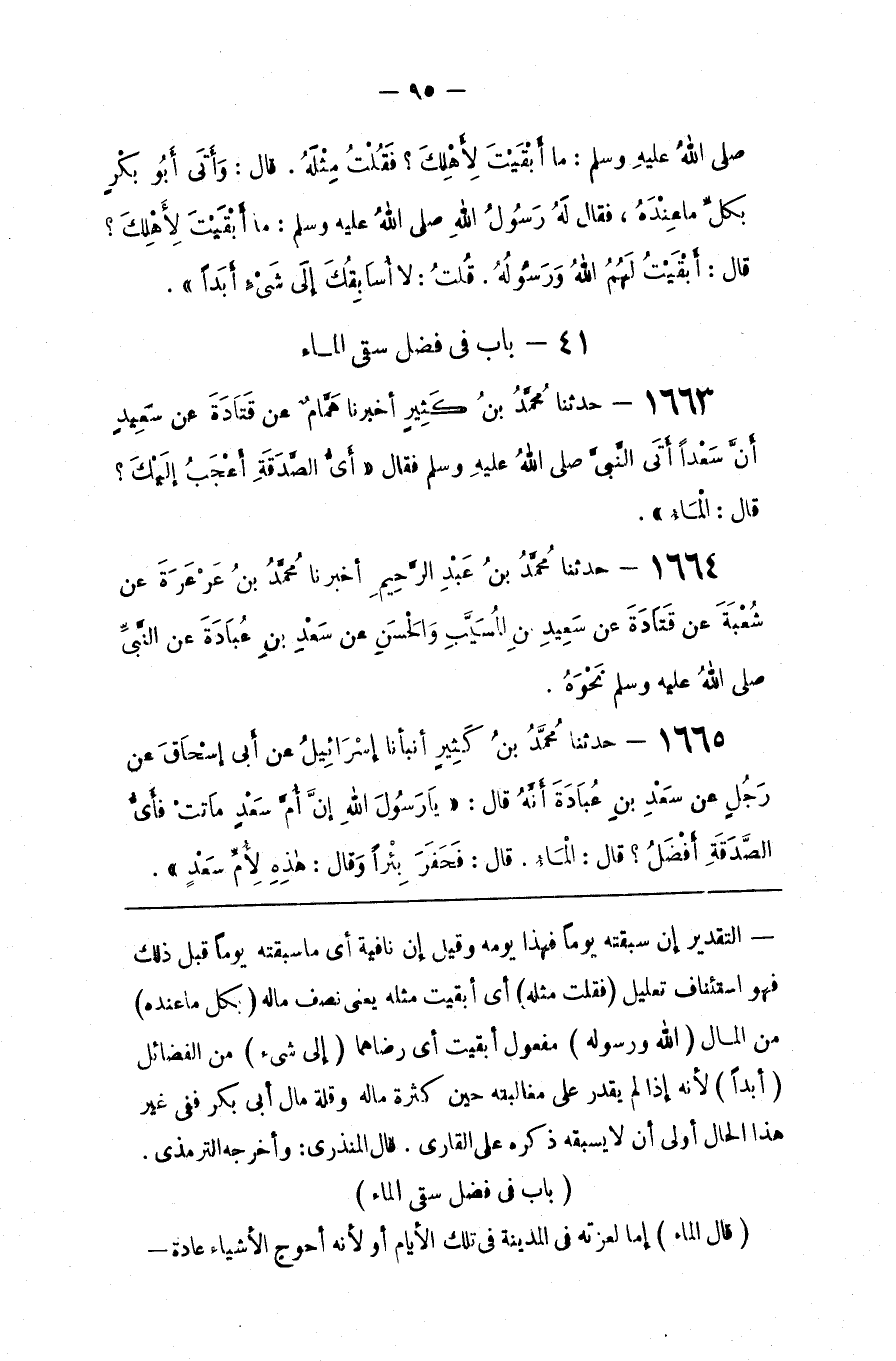 — ٩٥ —
صلى اللهُ عليهِ وسلم : ما أَبْقَيْتَ لِأَهْلِكَ ؟ فَقُلْتُ مِثْلَهُ . قال : وَأَتَى أَبُو بَكْرٍ
بكلِّ ماعِنْدَهُ ، فقال لَهُ رَسُولُ اللهِ صلى اللهُ عليه وسلم : ما أَبْقَيْتَ لِأَهْلِكَ ؟
قال : أَبْقَيْتُ لَهُمُ اللهُ وَرَسُولُهُ . قُلتُ : لا أُسَابِقُكَ إِلَى شَىْءٍ أَبَداً » .
٤١ — باب فى فضل سقى المـاء
١٦٦٣ — حدثنا مُحمَّدُ بنُ كَثِيرٍ أخبرنا هَمَّامٌ عن قَتَادَةَ عن سَعِيدٍ
أَنَّ سَعْداً أَتَى النَّبىَّ صلى اللهُ عليهِ وسلم فقال « أَىُّ الصَّدَقَةِ أَعْجَبُ إِلَيْكَ ؟
قال : الْمَـاءُ » .
١٦٦٤ — حدثنا مُحمَّدُ بنُ عَبْدِ الرَّحِيمِ أخبرنا مُحمَّدُ بنُ عَرْعَرَةَ عن
شُعْبَةَ عن قَتَادَةَ عن سَعِيدِ بنِ الْمُسَيَّبِ وَالْحسَنِ عن سَعْدِ بنِ عُبَادَةَ عن النَّبىِّ
صلى اللهُ عليه وسلم نَحْوَهُ .
١٦٦٥ — حدثنا مُحمَّدُ بنُ كَثِيرٍ أنبأنا إِسْرَائِيلُ عن أبى إسْحَاقَ عن
رَجُلٍ عن سَعْدِ بنِ عُبَادَةَ أَنَّهُ قال : « يَارَسُولَ اللهِ إِنَّ أُمَّ سَعْدٍ مَاتتْ فأَىُّ
الصَّدَقَةِ أَفْضَلُ ؟ قال : الْمَـاءُ . قال : فَحَفَرَ بِئْراً وَقال : هٰذِهِ لِأُمِّ سَعْدٍ » .
— التقدير إن سبقته يوماً فهذا يومه وقيل إن نافية أى ماسبقته يوماً قبل ذلك
فهو استئناف تعليل (فقلت مثله) أى أبقيت مثله يعنى نصف ماله ( بكل ماعنده)
من المـال ( الله ورسوله ) مفعول أبقيت أى رضاهما ( إلى شىء ) من الفضائل
( أبداً ) لأنه إذا لم يقدر على مغالبته حين كثرة ماله وقلة مال أبى بكر ففى غير
هذا الحال أولى أن لا يسبقه ذكره على القارى . قال المنذرى : وأخرجه الترمذى .
( باب فى فضل سقى الماء )
( قال الماء ) إما لعزته فى المدينة فى تلك الأيام أو لأنه أحوج الأشياء عادة —